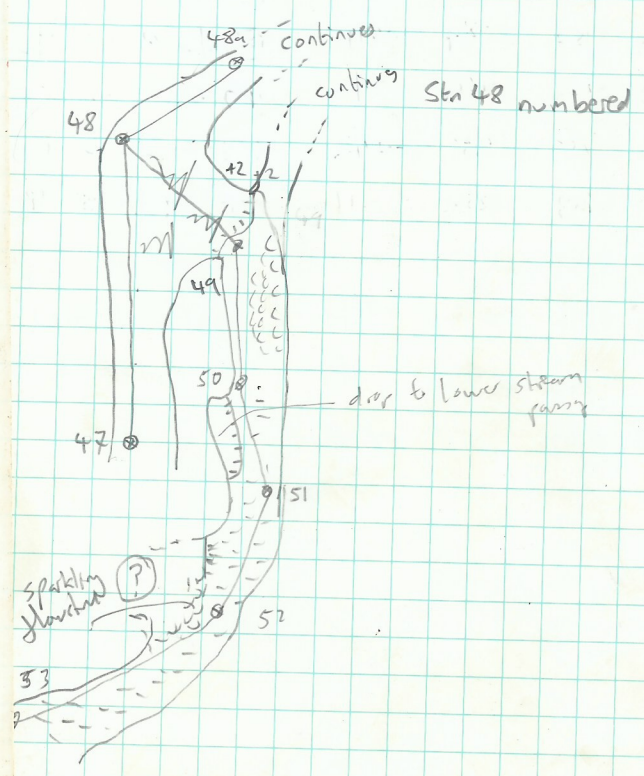 48a continues
continues
Stn 48 numbered
48
+2 2
49
50
drop to lower stream
passg
47
51
sparkling
flowstn
?
52
53